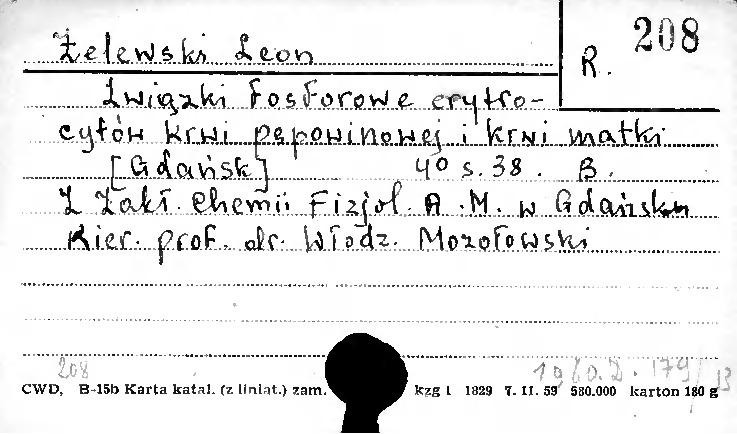 Żelewski Leon
R. 208
Związki fosforowe erytro-
cytów krwi pępowinowej i krwi matki
[Gdańsk] 4° s. 38. B.
Z Zakł. Chemii Fizjol. A.M. w Gdańsku
Kier. prof. dr. Włodz. Mozołowski
208
CWD, B-15b Karta katal. (z liniat.) zam. kzg 1 1829 7. II. 59 580.000 karton 180 g